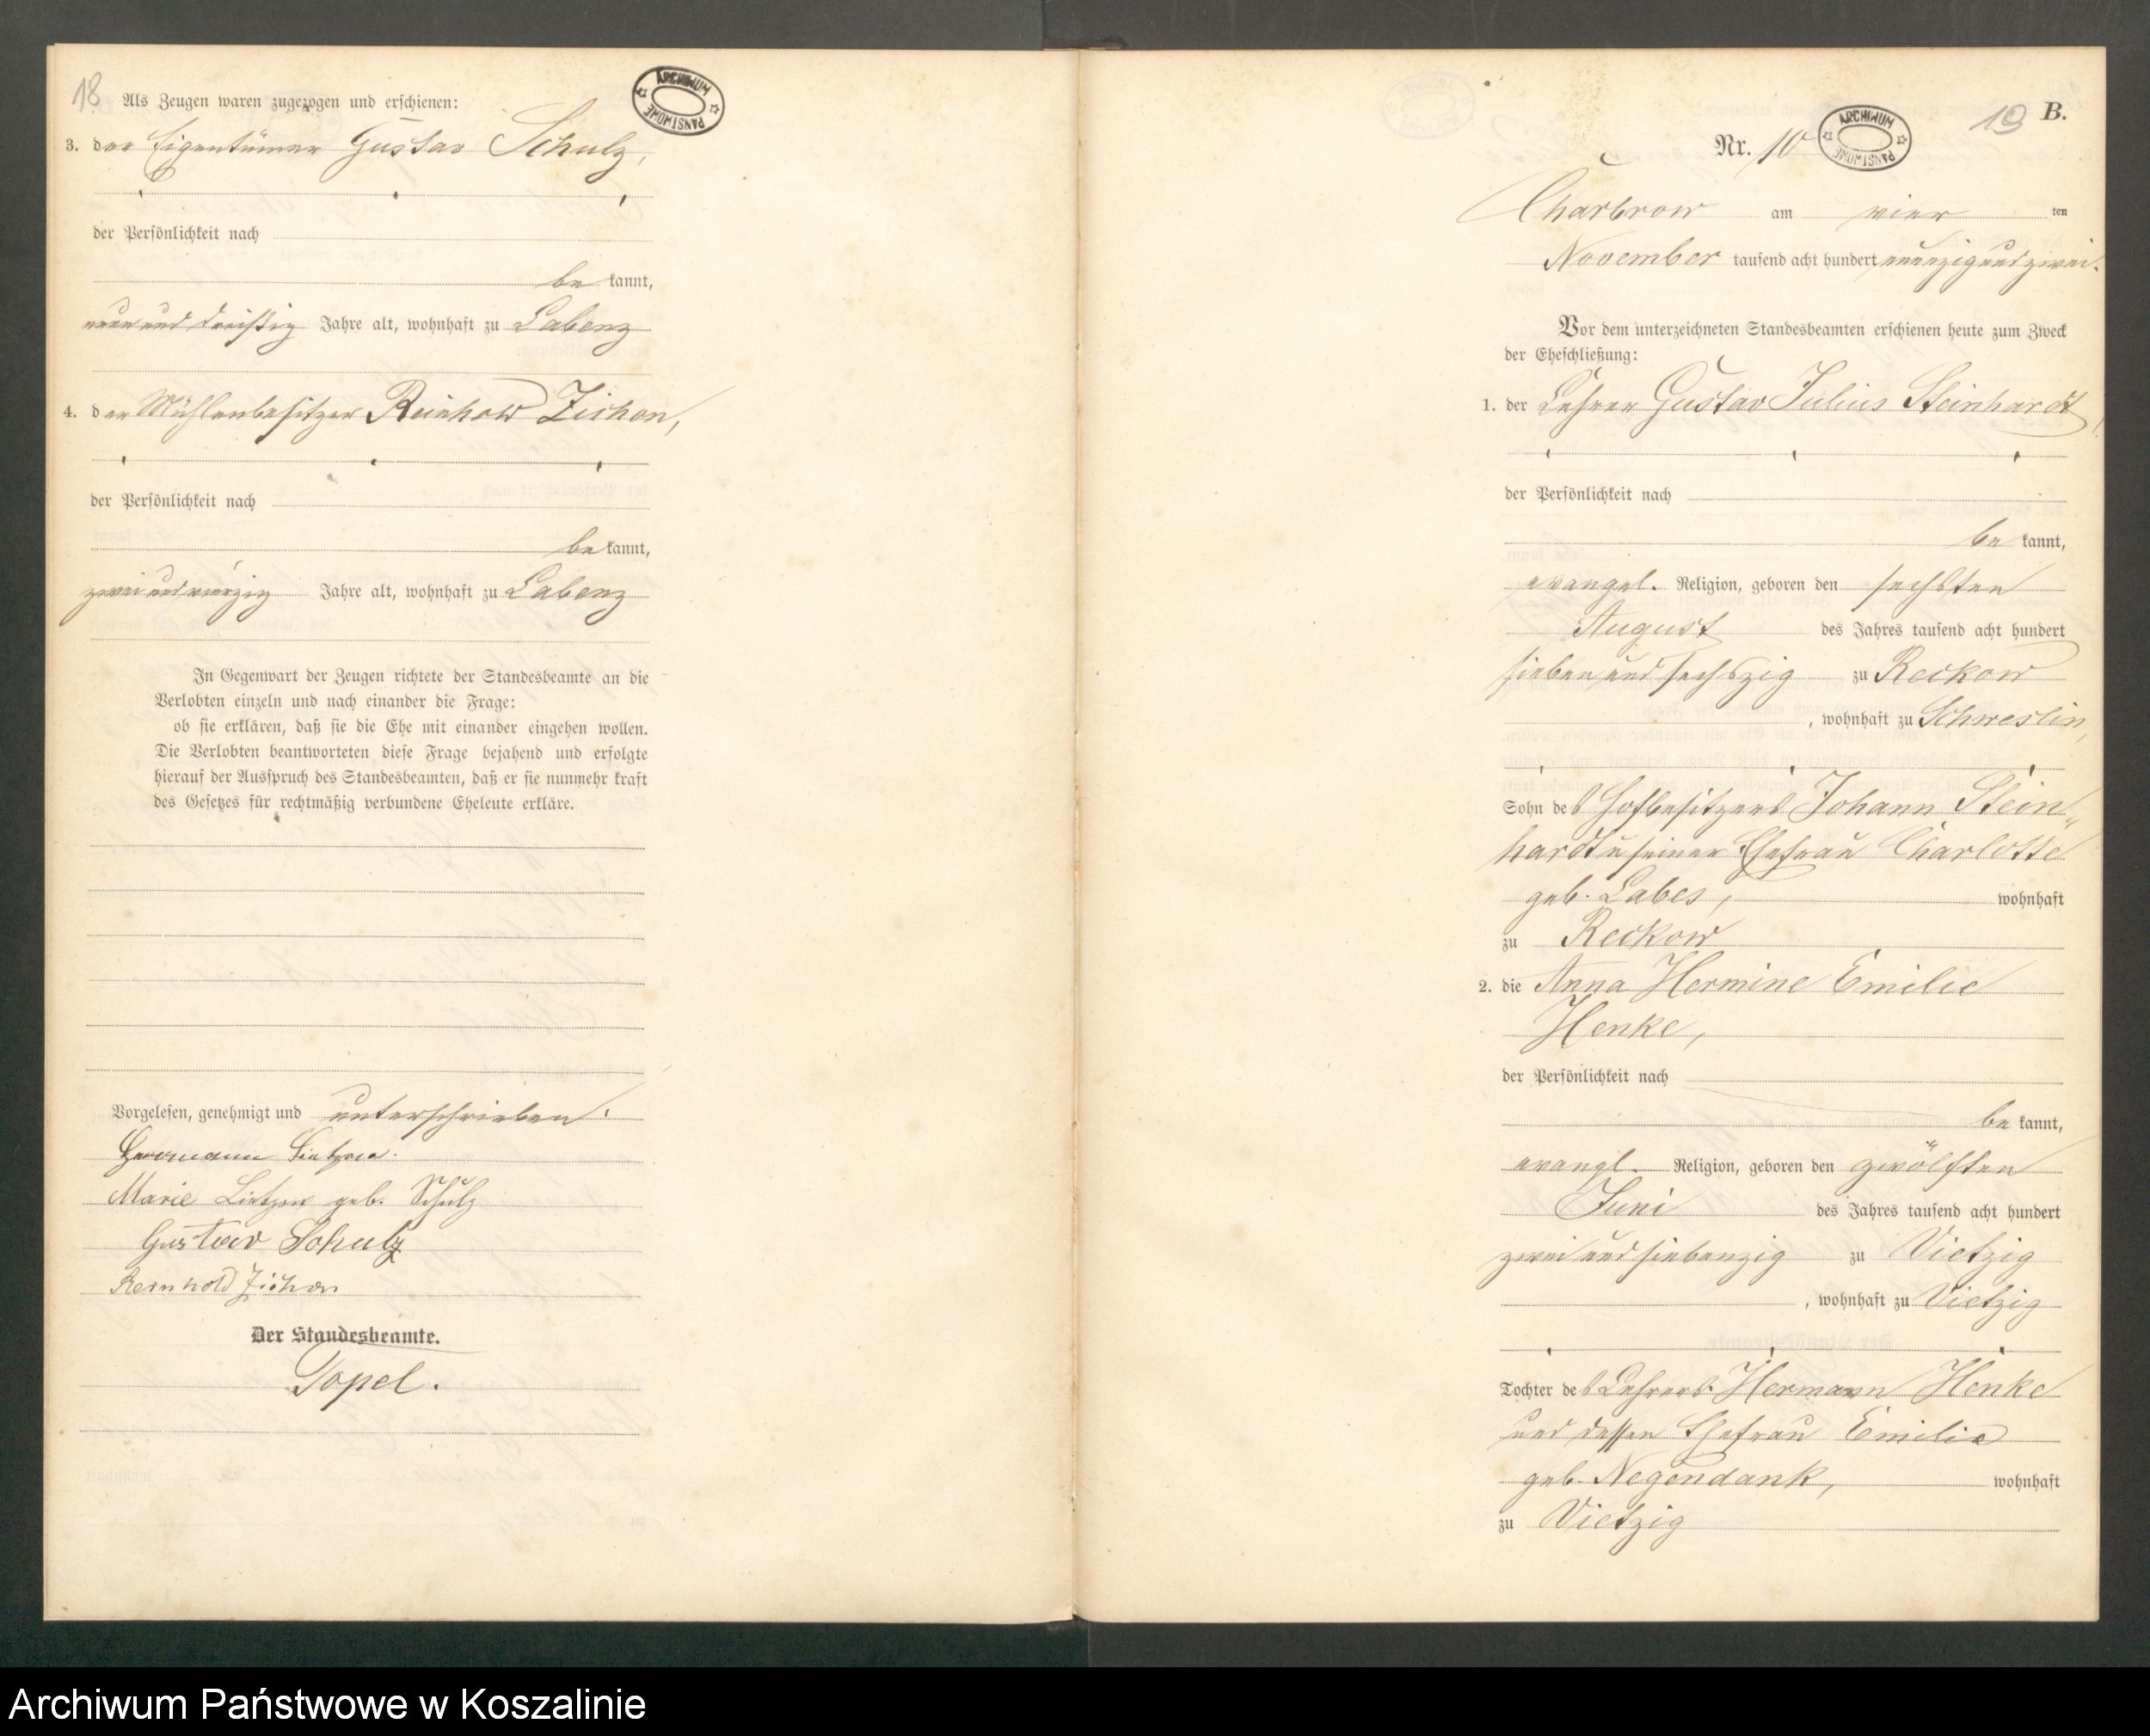 18
Als Zeugen waren zugezogen und erschienen:
ARCHIWUM PAŃSTWOWE
3. der Eigentümer Gustav Schulz,
der Persönlichkeit nach
be kannt,
neun und dreißig Jahre alt, wohnhaft zu Labenz
4. der Mühlenbesitzer Reinhold Zichon,
der Persönlichkeit nach
be kannt,
zwei und vierzig Jahre alt, wohnhaft zu Labenz
In Gegenwart der Zeugen richtete der Standesbeamte an die
Verlobten einzeln und nach einander die Frage:
ob sie erklären, daß sie die Ehe mit einander eingehen wollen.
Die Verlobten beantworteten diese Frage bejahend und erfolgte
hierauf der Ausspruch des Standesbeamten, daß er sie nunmehr kraft
des Gesetzes für rechtmäßig verbundene Eheleute erkläre.
Vorgelesen, genehmigt und unterschrieben.
Herrmann Lietzow.
Marie Lietzow geb. Schulz
Gustav Schulz
Reinhold Zichon
Der Standesbeamte.
Topel.
19 B.
Nr. 10
ARCHIWUM PAŃSTWOWE
Charbrow am vier ten
November tausend acht hundert neunzig und zwei.
Vor dem unterzeichneten Standesbeamten erschienen heute zum Zweck
der Eheschließung:
1. der Lehrer Gustav Julius Steinhardt,
der Persönlichkeit nach
be kannt,
evangel. Religion, geboren den sechsten
August des Jahres tausend acht hundert
sieben und sechszig zu Reckow
, wohnhaft zu Schweslin,
Sohn des Hofbesitzers Johann Stein„
hardt u seiner Ehefrau Charlotte
geb. Labes, wohnhaft
zu Reckow
2. die Anna Hermine Emilie
Henke,
der Persönlichkeit nach
be kannt,
evangl. Religion, geboren den zwölften
Juni des Jahres tausend acht hundert
zwei und siebenzig zu Vietzig
, wohnhaft zu Vietzig
Tochter des Lehrers Hermann Henke
und dessen Ehefrau Emilie
geb. Negendank, wohnhaft
zu Vietzig
Archiwum Państwowe w Koszalinie